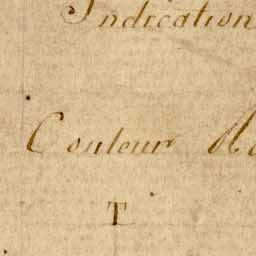 Indication
Couleur
T